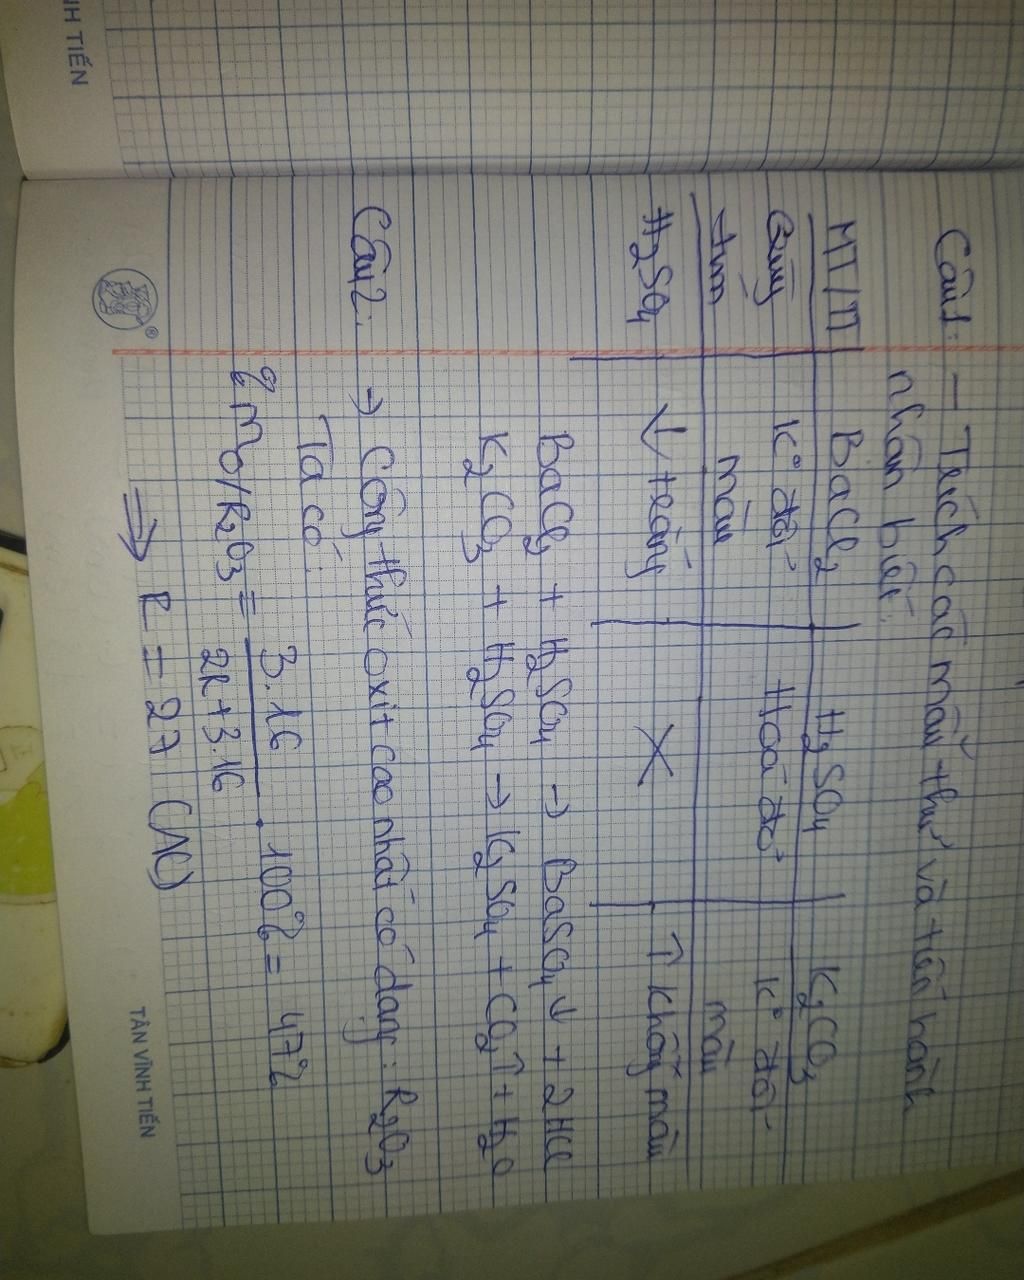 Câu 1: - Trích các mẫu thử và tiến hành
nhận biết.
MT/TT BaCl2 H2SO4 K2CO3
Quỳ tím K° đổi màu Hoá đỏ K° đổi màu
H2SO4 ↓ trắng X ↑ không màu
BaCl2 + H2SO4 → BaSO4↓ + 2HCl
K2CO3 + H2SO4 → K2SO4 + CO2↑ + H2O
Câu 2: → Công thức oxit cao nhất có dạng: R2O3
Ta có:
%mO/R2O3 = 3.16 / 2R+3.16 . 100% = 47%
⇒ R = 27 (Al)
NH TIẾN
TÂN VĨNH TIẾN
®